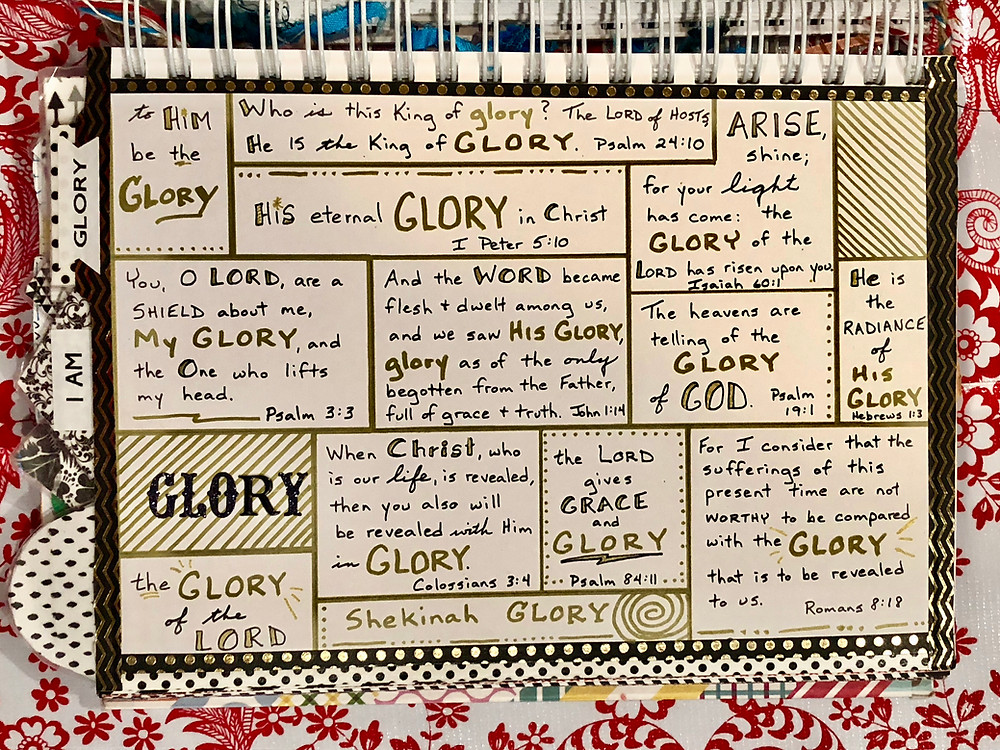 to HIM
be the
GLORY
Who is this King of glory? The LORD of HOSTS,
He IS the King of GLORY. Psalm 24:10
HiS eternal GLORY in Christ
I Peter 5:10
ARISE,
shine;
for your light
has come: the
GLORY of the
LORD has risen upon you.
Isaiah 60:1
You, O LORD, are a
SHIELD about me,
My GLORY, and
the One who lifts
my head.
Psalm 3:3
And the WORD became
flesh + dwelt among us,
and we saw HIS GLORY,
glory as of the only
begotten from the Father,
full of grace + truth. John 1:14
The heavens are
telling of the
GLORY
of GOD. Psalm
19:1
He is
the
RADIANCE
of
HIS
GLORY
Hebrews 1:3
GLORY
the GLORY
of the
LORD
When Christ, who
is our life, is revealed,
then you also will
be revealed with Him
in GLORY.
Colossians 3:4
the LORD
gives
GRACE
and
GLORY
Psalm 84:11
Shekinah GLORY
For I consider that the
sufferings of this
present time are not
WORTHY to be compared
with the GLORY
that is to be revealed
to us. Romans 8:18
GLORY
I AM